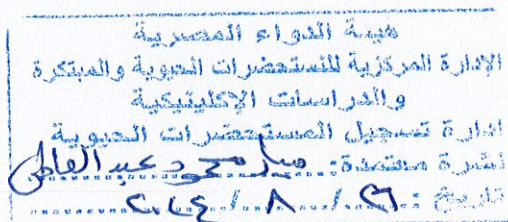 هيئة الدواء المصرية
الإدارة المركزية للمستحضرات الحيوية والمبتكرة
والدراسات الإكلينيكية
ادارة تسجيل المستحضرات الحيوية
نشرة معتمدة: محمود عبد العاطي
تاريخ : ٢٦ / ٨ / ٢٠٢٤